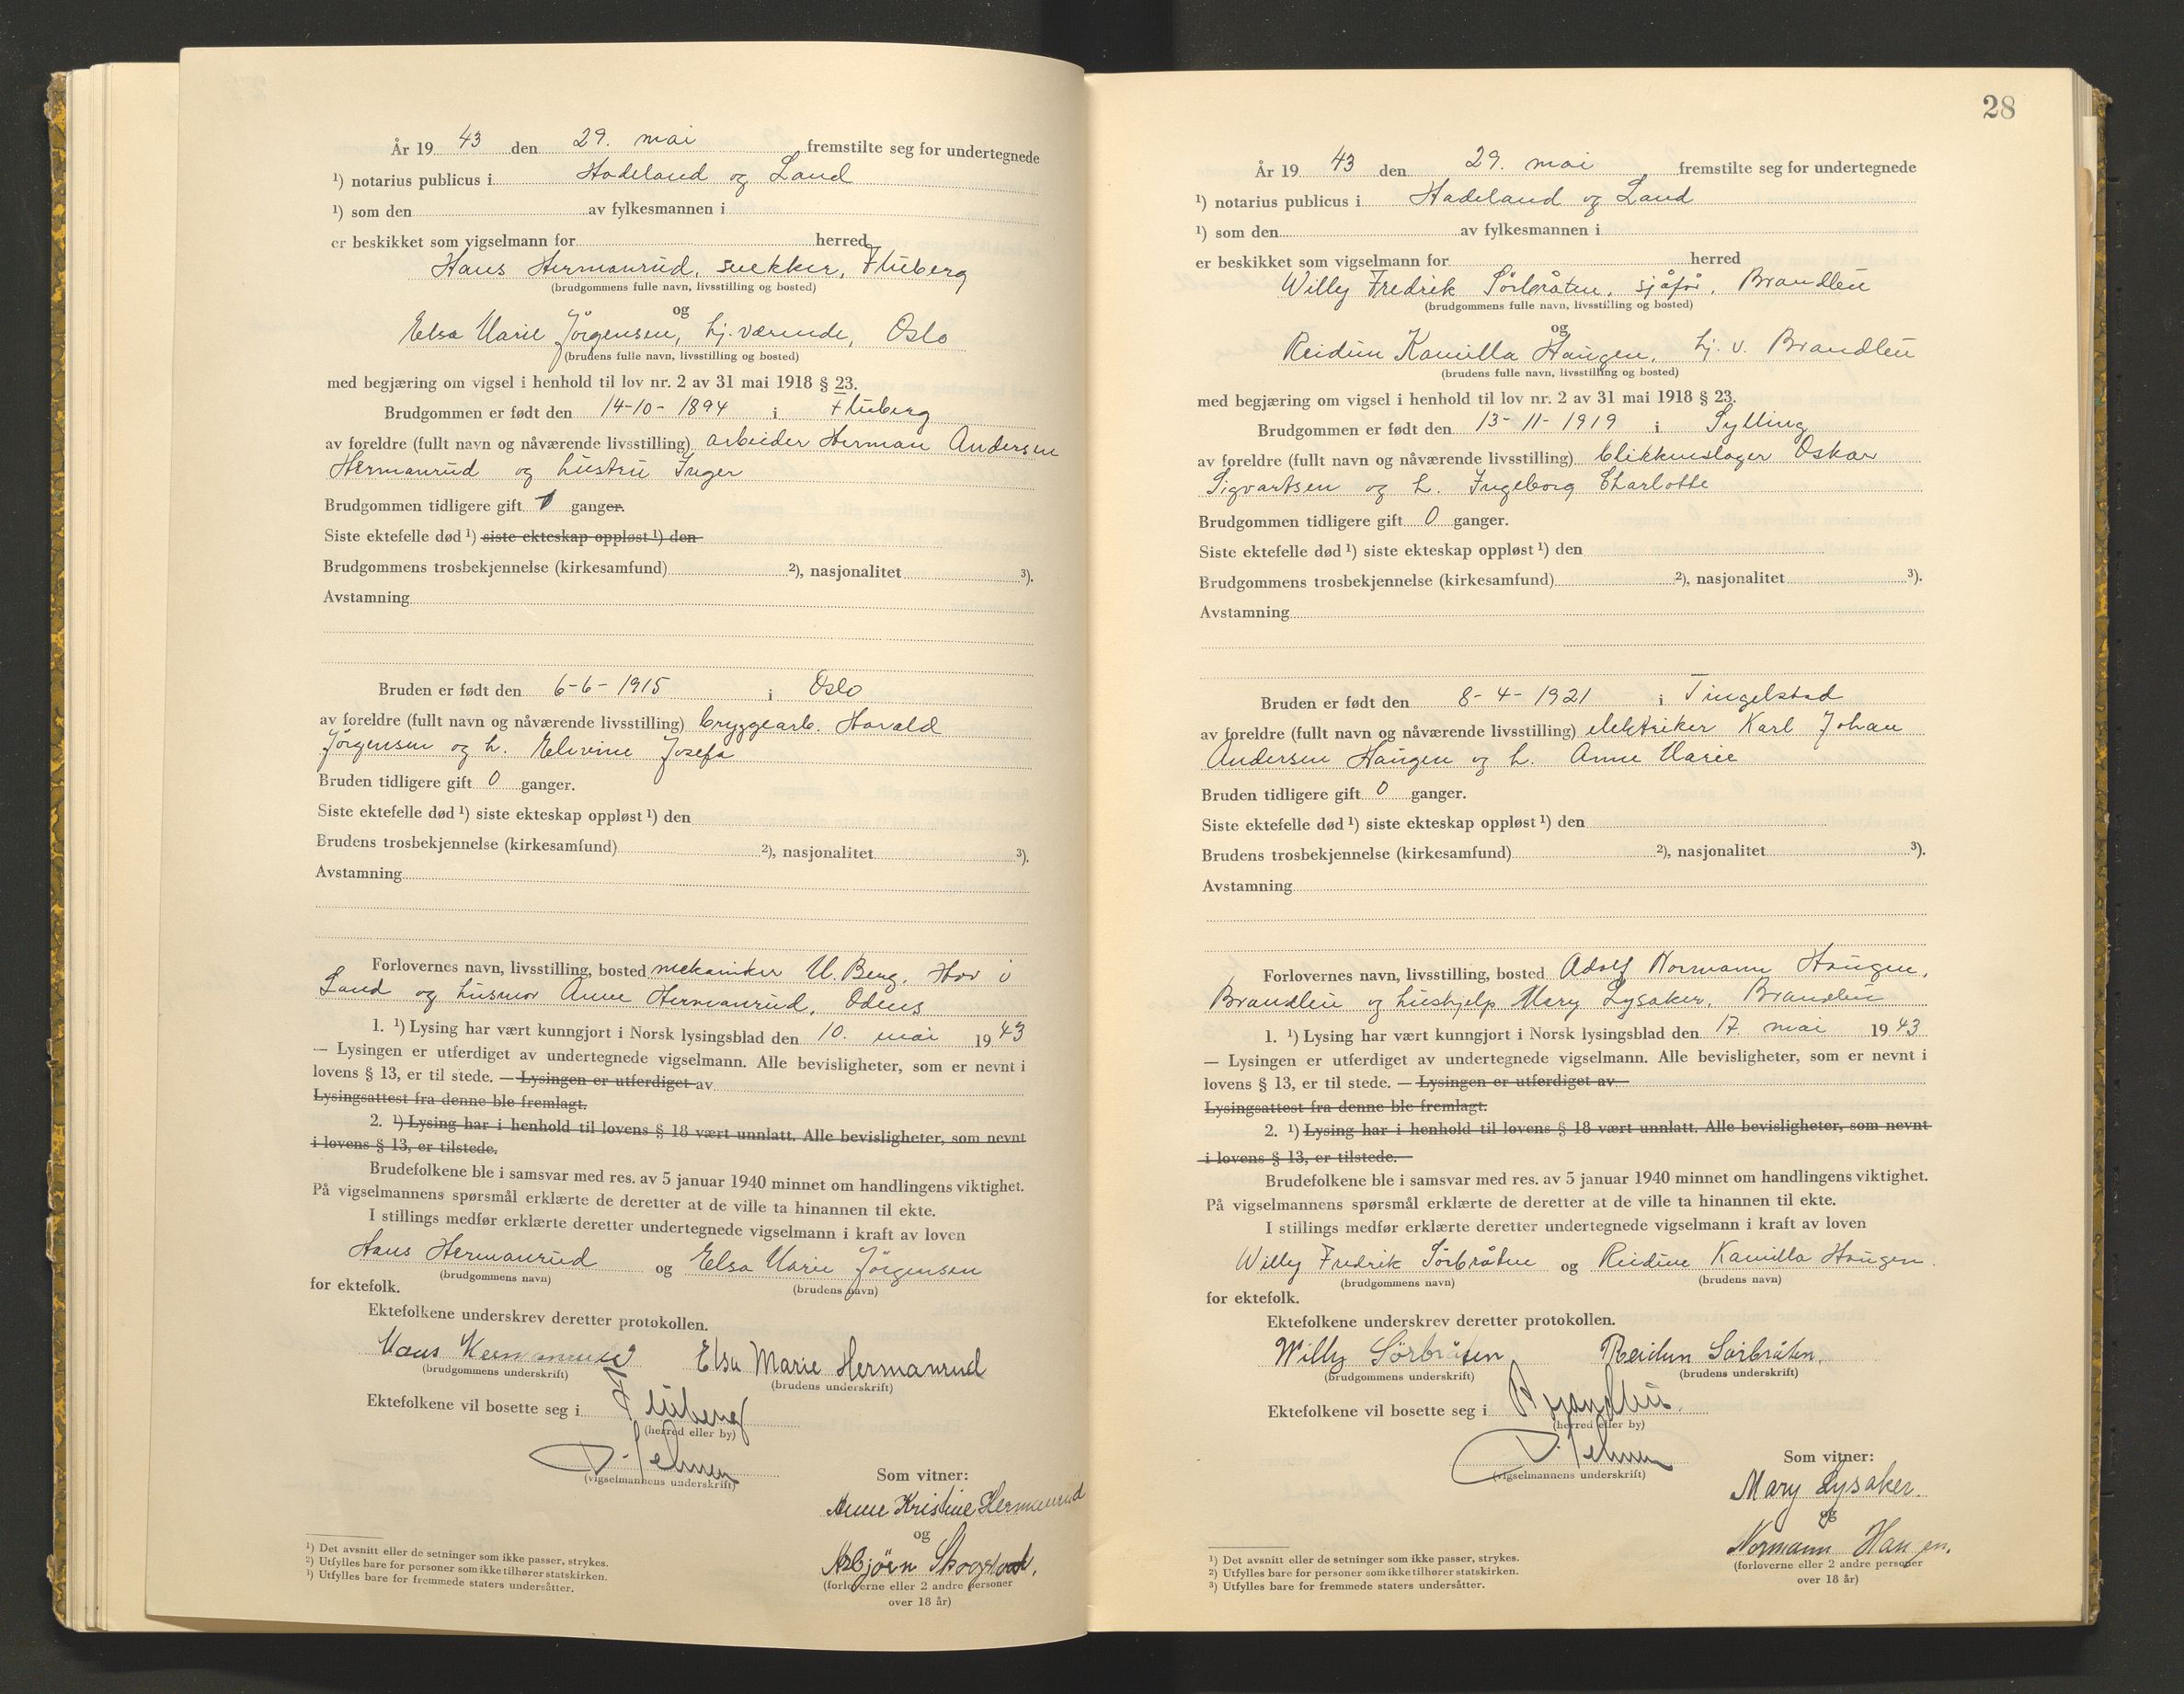 År 19 43 den 29. mai fremstilte seg for undertegnede
¹) notarius publicus i Hadeland og Land
¹) som den av fylkesmannen i
er beskikket som vigselmann for herred
Hans Hermanrud, snekker, Fluberg
(brudgommens fulle navn, livsstilling og bosted)
og
Elsa Marie Jörgensen, hj. værende, Oslo
(brudens fulle navn, livsstilling og bosted)
med begjæring om vigsel i henhold til lov nr. 2 av 31 mai 1918 § 23.
Brudgommen er født den 14-10-1894 i Fluberg
av foreldre (fullt navn og nåværende livsstilling) arbeider Herman Andersen
Hermanrud og hustru Inger
Brudgommen tidligere gift 1 ganger.
Siste ektefelle død ¹) siste ekteskap oppløst ¹) den
Brudgommens trosbekjennelse (kirkesamfund) ²), nasjonalitet ³).
Avstamning
Bruden er født den 6-6-1915 i Oslo
av foreldre (fullt navn og nåværende livsstilling) bryggearb. Harald
Jörgensen og h. Elevine Josefa
Bruden tidligere gift 0 ganger.
Siste ektefelle død ¹) siste ekteskap oppløst ¹) den
Brudens trosbekjennelse (kirkesamfund) ²), nasjonalitet ³).
Avstamning
Forlovernes navn, livsstilling, bosted mekaniker M. Berg, Hov i
Land og husmor Anne Hermanrud, Odnes
1. ¹) Lysing har vært kunngjort i Norsk lysingsblad den 10. mai 1943
— Lysingen er utferdiget av undertegnede vigselmann. Alle bevisligheter, som er nevnt i
lovens § 13, er til stede. — Lysingen er utferdiget av
Lysingsattest fra denne ble fremlagt.
2. ¹) Lysing har i henhold til lovens § 18 vært unnlatt. Alle bevisligheter, som nevnt
i lovens § 13, er tilstede.
Brudefolkene ble i samsvar med res. av 5 januar 1940 minnet om handlingens viktighet.
På vigselmannens spørsmål erklærte de deretter at de ville ta hinannen til ekte.
I stillings medfør erklærte deretter undertegnede vigselmann i kraft av loven
Hans Hermanrud og Elsa Marie Jörgensen
(brudgommens navn) (brudens navn)
for ektefolk.
Ektefolkene underskrev deretter protokollen.
Hans Hermanrud Elsa Marie Hermanrud
(brudgommens underskrift) (brudens underskrift)
Ektefolkene vil bosette seg i Fluberg
(herred eller by)
(vigselmannens underskrift)
Som vitner:
Anne Kristine Hermanrud
og
Asbjörn Skogstad.
(forloverne eller 2 andre personer
over 18 år)
¹) Det avsnitt eller de setninger som ikke passer, strykes.
²) Utfylles bare for personer som ikke tilhører statskirken.
³) Utfylles bare for fremmede staters undersåtter.
28
År 19 43 den 29. mai fremstilte seg for undertegnede
¹) notarius publicus i Hadeland og Land
¹) som den av fylkesmannen i
er beskikket som vigselmann for herred
Willy Fredrik Sörbråten, sjåför, Brandbu
(brudgommens fulle navn, livsstilling og bosted)
og
Reidun Kamilla Haugen, hj. v. Brandbu
(brudens fulle navn, livsstilling og bosted)
med begjæring om vigsel i henhold til lov nr. 2 av 31 mai 1918 § 23.
Brudgommen er født den 13-11-1919 i Sylling
av foreldre (fullt navn og nåværende livsstilling) blikkenslager Oskar
Sigvartsen og h. Ingeborg Charlotte
Brudgommen tidligere gift 0 ganger.
Siste ektefelle død ¹) siste ekteskap oppløst ¹) den
Brudgommens trosbekjennelse (kirkesamfund) ²), nasjonalitet ³).
Avstamning
Bruden er født den 8-4-1921 i Tingelstad
av foreldre (fullt navn og nåværende livsstilling) elektriker Karl Johan
Andersen Haugen og h. Anne Marie
Bruden tidligere gift 0 ganger.
Siste ektefelle død ¹) siste ekteskap oppløst ¹) den
Brudens trosbekjennelse (kirkesamfund) ²), nasjonalitet ³).
Avstamning
Forlovernes navn, livsstilling, bosted Adolf Normann Haugen,
Brandbu og hushjelp Mary Lysaker, Brandbu
1. ¹) Lysing har vært kunngjort i Norsk lysingsblad den 17. mai 1943
— Lysingen er utferdiget av undertegnede vigselmann. Alle bevisligheter, som er nevnt i
lovens § 13, er til stede. — Lysingen er utferdiget av
Lysingsattest fra denne ble fremlagt.
2. ¹) Lysing har i henhold til lovens § 18 vært unnlatt. Alle bevisligheter, som nevnt
i lovens § 13, er tilstede.
Brudefolkene ble i samsvar med res. av 5 januar 1940 minnet om handlingens viktighet.
På vigselmannens spørsmål erklærte de deretter at de ville ta hinannen til ekte.
I stillings medfør erklærte deretter undertegnede vigselmann i kraft av loven
Willy Fredrik Sörbråten og Reidun Kamilla Haugen.
(brudgommens navn) (brudens navn)
for ektefolk.
Ektefolkene underskrev deretter protokollen.
Willy Sörbråten Reidun Sörbråten.
(brudgommens underskrift) (brudens underskrift)
Ektefolkene vil bosette seg i Brandbu.
(herred eller by)
(vigselmannens underskrift)
Som vitner:
Mary Lysaker.
og
Normann Haugen.
(forloverne eller 2 andre personer
over 18 år)
¹) Det avsnitt eller de setninger som ikke passer, strykes.
²) Utfylles bare for personer som ikke tilhører statskirken.
³) Utfylles bare for fremmede staters undersåtter.